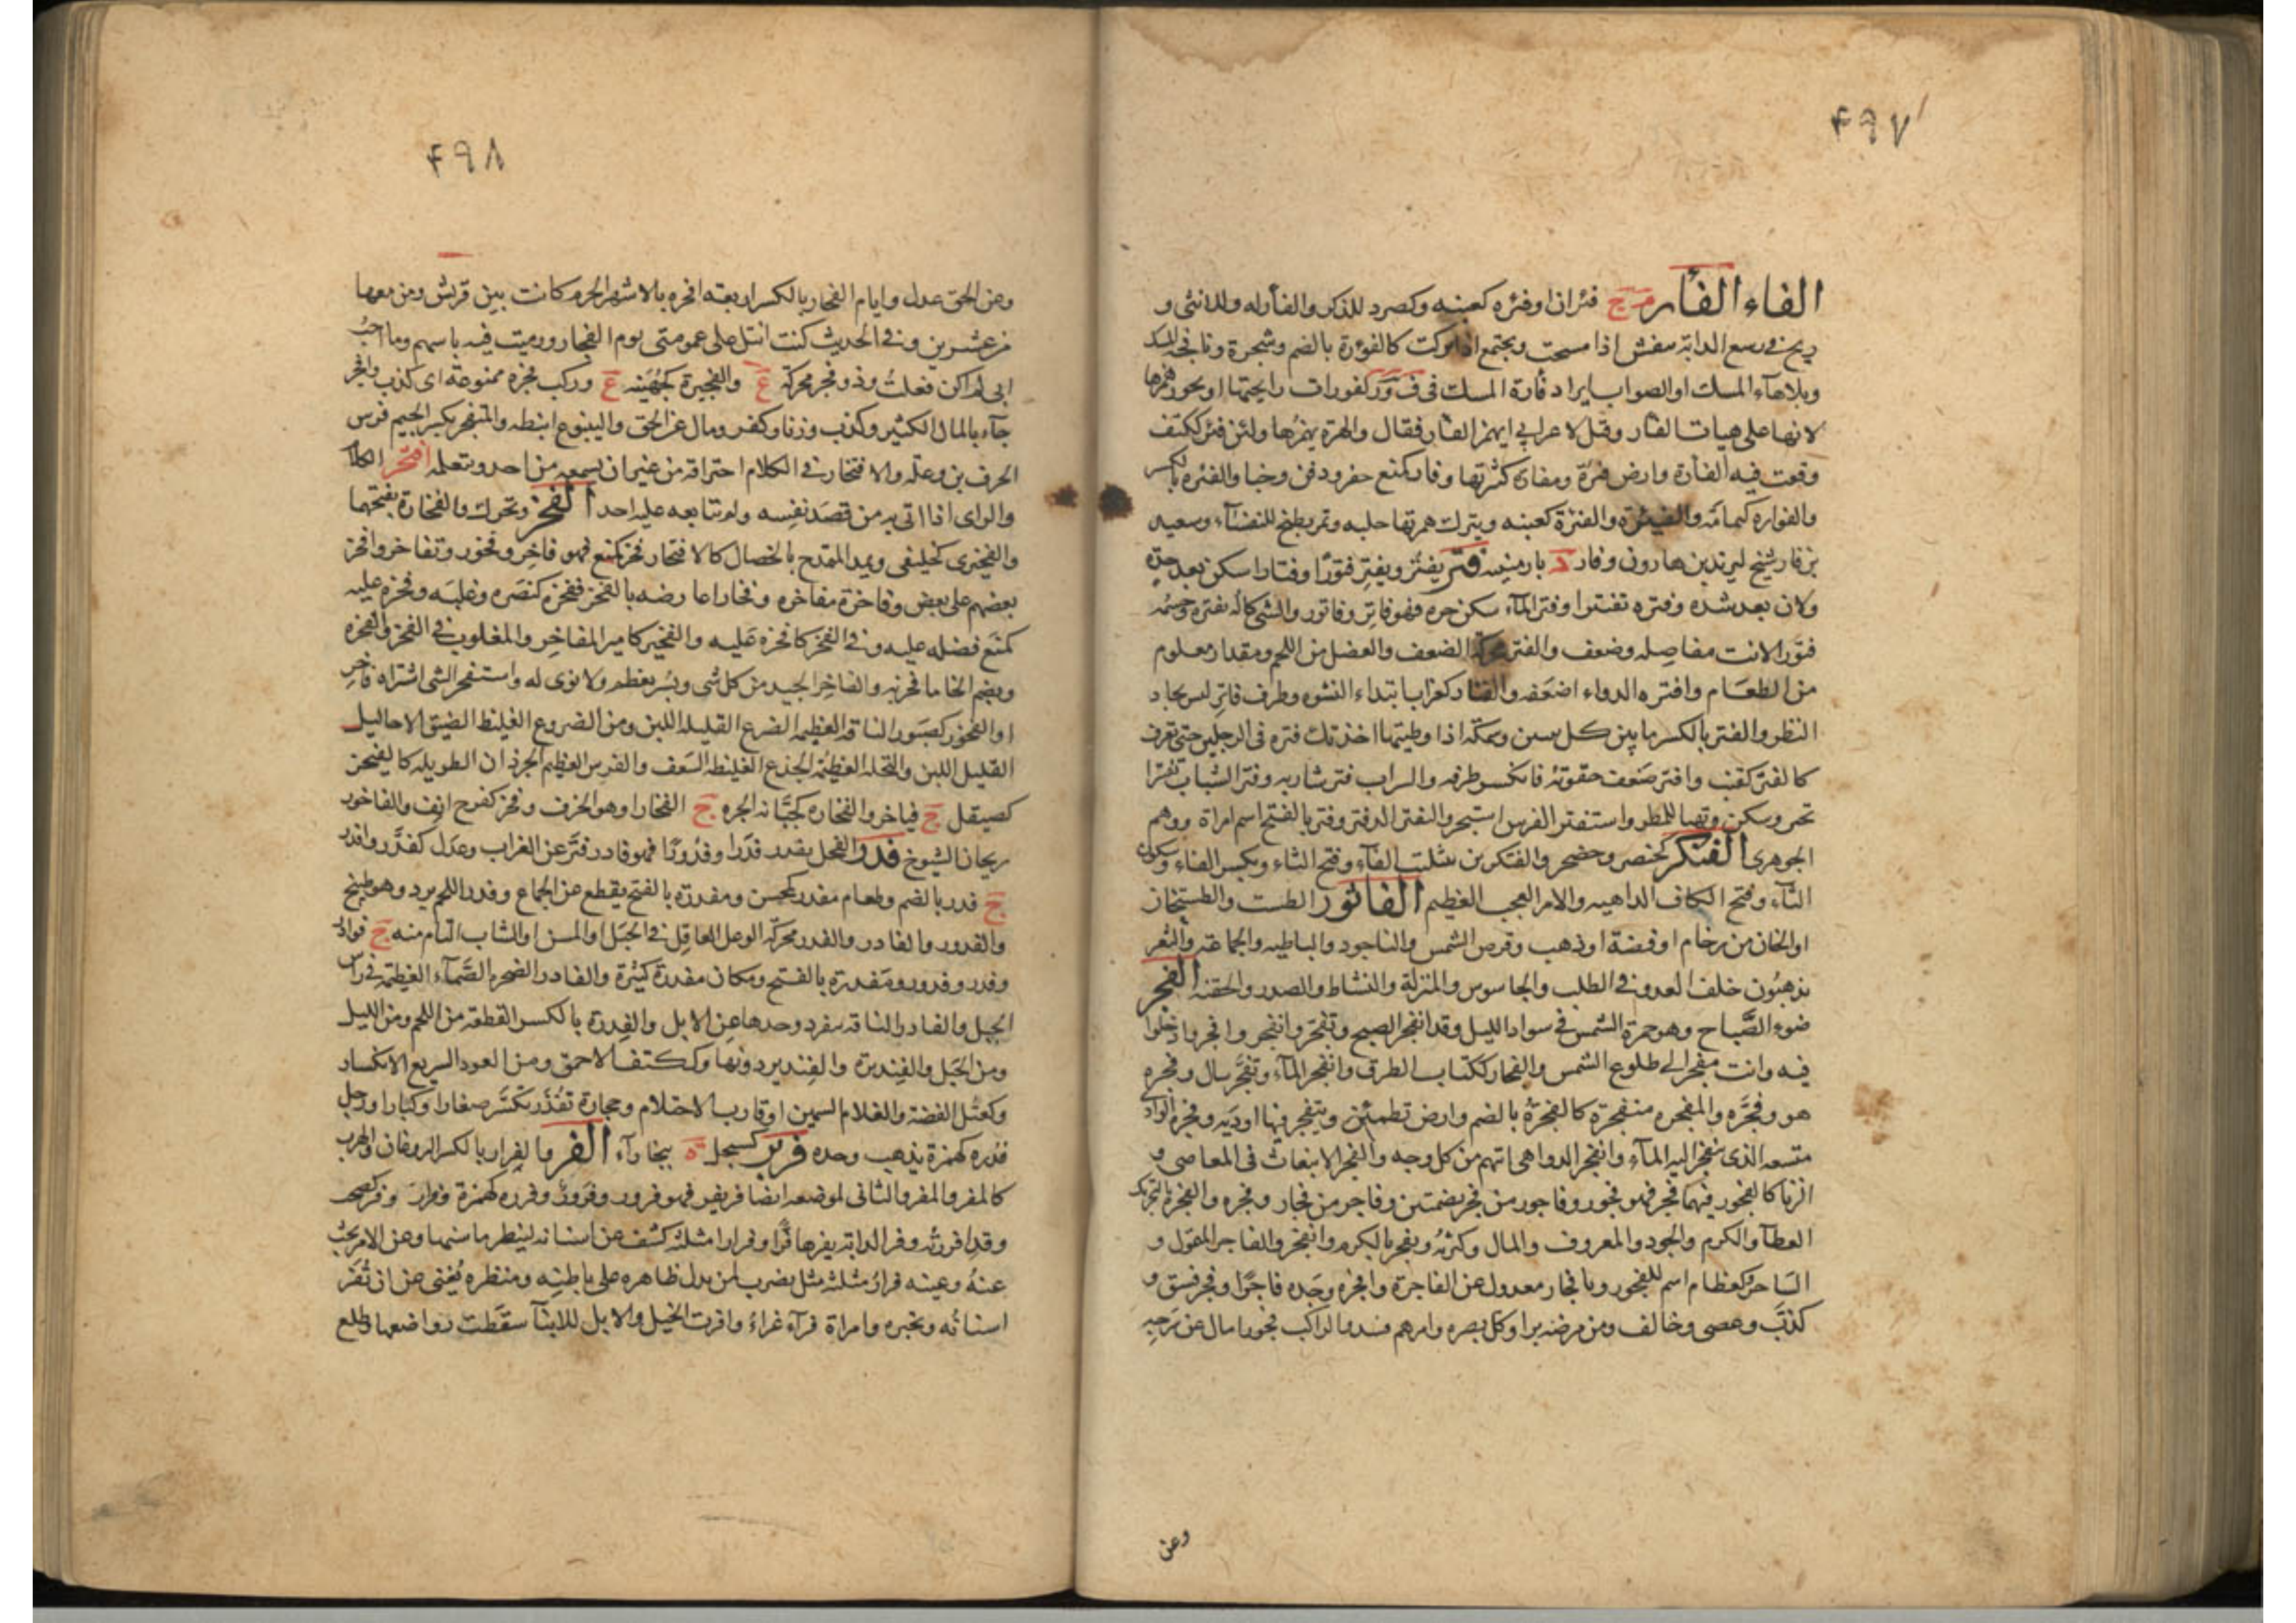 ۴۹۷
الفاء الفأر م ج فئران وفئره كعنبه وكصرد للذكر والفأر له وللانثى و
ريح فى رسغ الدابة تنفش اذا مسحت وتجتمع اذا تركت كالفؤرة بالضم وشجرة ونافجة المسك
وبلاهاء المسك او الصواب ايراد فارة المسك فى ف و ر لفورات رايحتها او يجوز همزها
لانها على هيات الفار وقيل لاعرابى ايهمز الفار فقال والهرة يهمزها ولبن فئر ككتف
وقعت فيه الفأرة وارض فئرة ومفأرة كثرتها وفار كمنع حفر ودفن وخبا والفئره بالكسر
والفواره كثمامة والفيئرة والفئرة كعنبه ويترك همزتها حلبه وتمر يطبخ للنفساء وسعيد
بن فار شيخ ليزيد بن هارون وفار د بارمينيه فتر يفتر ويفتر فتورا وفتارا سكن بعد حدة
ولان بعد شده وفتره تفتيرا وفتر الماء سكن حره فهو فاتر وفاتور والشى كاله بفتره وجسمه
فتورا لانت مفاصله وضعف والفتر محركة الضعف والعضل من اللحم ومقدار معلوم
من الطعام وافتره الدواء اضعفه والفتار كغراب ابتداء النشوه وطرف فاتر ليس بحاد
النظر والفتر بالكسر ما بين كل سمكة اذا وطيتها اخذتك فتره فى الرجلين حتى تعرق
كالفتر كقنب وافتر ضعف حقوته فانكسر طرفه والسراب فتر شاربه وفتر السحاب تفترا
تحير وسكن وتهيا للمطر واستفتر الفرس استجر والتفتر الدفتر وفتر بالفتح اسم امراة ووهم
الجوهرى الفتكر كخنصر وحضجر والفتكرين بتثليث الفاء وفتح التاء وبكسر الفاء وسكون
التاء وفتح الكاف الداهيه والامر العجب العظيم الفاثور الطست والطستخان
او الخان من رخام او فضة او ذهب وقرص الشمس والناجود والباطيه والجماعة والثغر
يذهبون خلف العدو فى الطلب والجاسوس والمنزلة والنشاط والصدر والجفنة الفجر
ضوء الصباح وهو حمرة الشمس فى سواد الليل وقد انفجر الصبح وتفجر وانفجر وافجروا دخلوا
فيه وانت مفجر الى طلوع الشمس والفجار ككتاب الطرق وانفجر الماء وتفجر سال وفجره
هو وفجره والمفجره منفجرة كالفجرة بالضم وارض تطمئن ويتفجر فيها اودية وفجرة الوادى
متسعه الذى ينفجر اليه الماء وانفجر الدواهى اتتهم من كل وجه والفجر الانبعاث فى المعاصى و
الزنا كالفجور فيهما فجر فهو فجور وفاجور من فجر بضمتين وفاجر من فجار وفجره والفجر بالتحريك
العطا والكرم والجود والمعروف والمال وكثرته وتفجر بالكرم وانفجر والفاجر المتمول و
الساحر وكقطام اسم للفجور ويا فجار معدول عن الفاجرة وافجره وجده فاجرا وفجر فسق و
كذب وعصى وخالف ومن مرضه برا وكل بصره وامرهم فسد والراكب فجورا مال عن سرجه
وعن
۴۹۸
وعن الحق عدل وايام الفجار بالكسر اربعة افجره بالاشهر الحرم كانت بين قريش ومن معها
وفى الحديث كنت انبل على عمومتى يوم الفجار ورميت فيه باسهم وما احب
انى لم اكن فعلت وذو فجر محركة ع والفجيرة كجهينه ع وركب فجره ممنوعة اى كذب وافجر
جاء بالمال الكثير وكذب وزنا وكفر ومال عن الحق والينبوع انبطه والمتفجر بكسر الجيم فرس
الحرث بن وعله والافتجار فى الكلام اختراقه من غير ان يسمعه من احد ويتعلمه افتحر الكلام
والراى اذا اتى به من قصد نفسه ولم يتابعه عليه احد الفخر ويحرك والفخارة بفتحهما
والفخيرى كخليفى ويمد التمدح بالخصال كالافتخار فخر كمنع فهو فاخر وفخور وتفاخروا فخر
بعضهم على بعض وفاخرة مفاخره وفخارا عارضه بالفخر ففخره كنصره وغلبه وفخره عليه
كمنع فضله عليه فى الفخر كافخره عليه والفخير كامير المفاخر والمغلوب فى الفخر والفخره
وبضم الخا ما فخر به والفاخر الجيد من كل شى وبسر يعظم ولا نوى له واستفخر الشى اشتراه فاخر
او الفخور كصبور الناقة العظيمة الضرع القليله اللبن ومن الضروع الغليظ الضيق الاحاليل
القليل اللبن والنخلة العظيمة الجذع الغليظة السعف والفرس العظيم الجردان الطويله كالفيخر
كصيقل ج فياخر والفخاره كجبانه الجره ج الفخار او هو الخزف وفخر كفرح انف والفاخور
ريحان الشيوخ فدر الفحل يفدر فدرا وفدورا فهو فادر فتر عن الضراب وعدل كفدر وافدر
ج فدر بالضم وطعام مفدر كمحسن ومفدرة بالفتح يقطع عن الجماع وفدر اللحم برد وهو طبيخ
والفدور والفادر والفدر محركة الوعل العاقل فى الجبل او المسن او الشاب التام منه ج فوادر
وفدر وفدور ومفدرة بالفتح ومكان مفدرة كثيرة والفادر الصخره الصماء العظيمة فى راس
الجبل والفادر الناقة تنفرد وحدها عن الابل والفدرة بالكسر القطعة من اللحم ومن الليل
ومن الجبل والفنديرة والفندير دونها وككتف الاحمق ومن العود السريع الانكسار
وكعتل الفضة والغلام السمين او قارب الاحتلام وحجارة تفدر تكسر صغارا وكبارا ورجل
فدره كهمزة يذهب وحده فربر كسبجل ة ببخاراء الفر والفرار بالكسر الروغان والهرب
كالمفر والمفر والثانى لموضعه ايضا فر يفر فهو فرور وفرورة وفرره كهمزة وفرار وفر كصحب
وقد افررته وفر الدابة يفرها فرا وفرارا مثلثة كشف عن اسنانه لينظر ما سنها وعن الامر بحث
عنه وعينه فراره مثلثة مثل يضرب لمن يدل ظاهره على باطنه ومنظره يغنى عن ان تفر
اسنانه وتخبره وامراة فراء غراء وافرت الخيل والابل للاثناء سقطت رواضعها وطلع